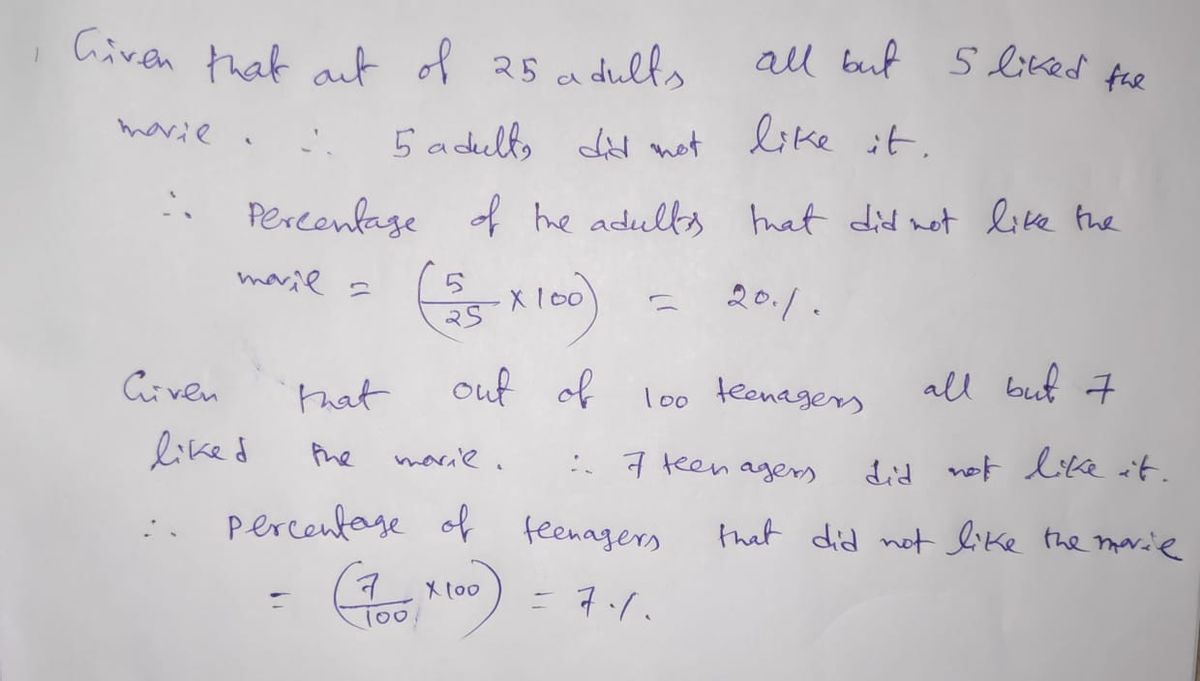 Given that out of 25 adults all but 5 liked the
movie. ∴ 5 adults did not like it.
∴ Percentage of the adults that did not like the
movie = (5/25 × 100) = 20%.
Given that out of 100 teenagers all but 7
liked the movie. ∴ 7 teenagers did not like it.
∴ percentage of teenagers that did not like the movie
= (7/100 × 100) = 7%.